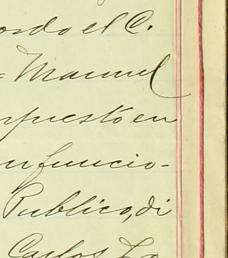 ordo el C.
= Manuel
rpuesto en
n funcio-
Publico, di
Carlos